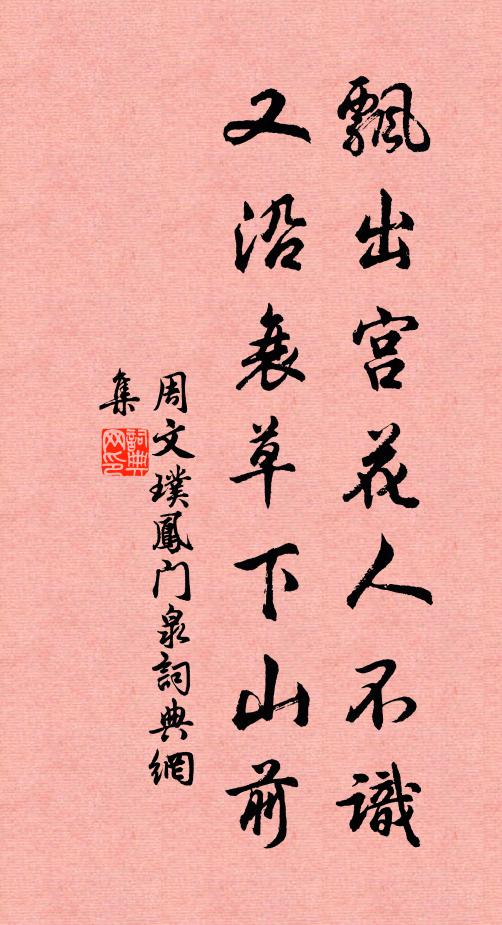 飄出宫花人不識
又沿衰草下山前
周文璞鳳门泉詞典網
集
詞典网印